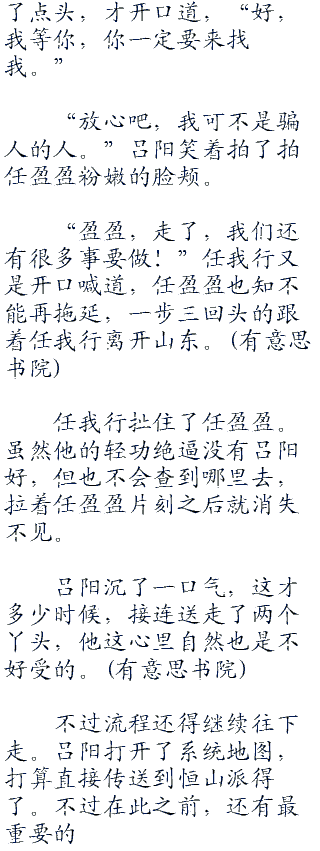 了点头，才开口道，“好，
我等你，你一定要来找
我。”
“放心吧，我可不是骗
人的人。”吕阳笑着拍了拍
任盈盈粉嫩的脸颊。
“盈盈，走了，我们还
有很多事要做！”任我行又
是开口喊道，任盈盈也知不
能再拖延，一步三回头的跟
着任我行离开山东。(有意思
书院)
任我行扯住了任盈盈。
虽然他的轻功绝逼没有吕阳
好，但也不会查到哪里去，
拉着任盈盈片刻之后就消失
不见。
吕阳沉了一口气，这才
多少时候，接连送走了两个
丫头，他这心里自然也是不
好受的。(有意思书院)
不过流程还得继续往下
走。吕阳打开了系统地图，
打算直接传送到恒山派得
了。不过在此之前，还有最
重要的